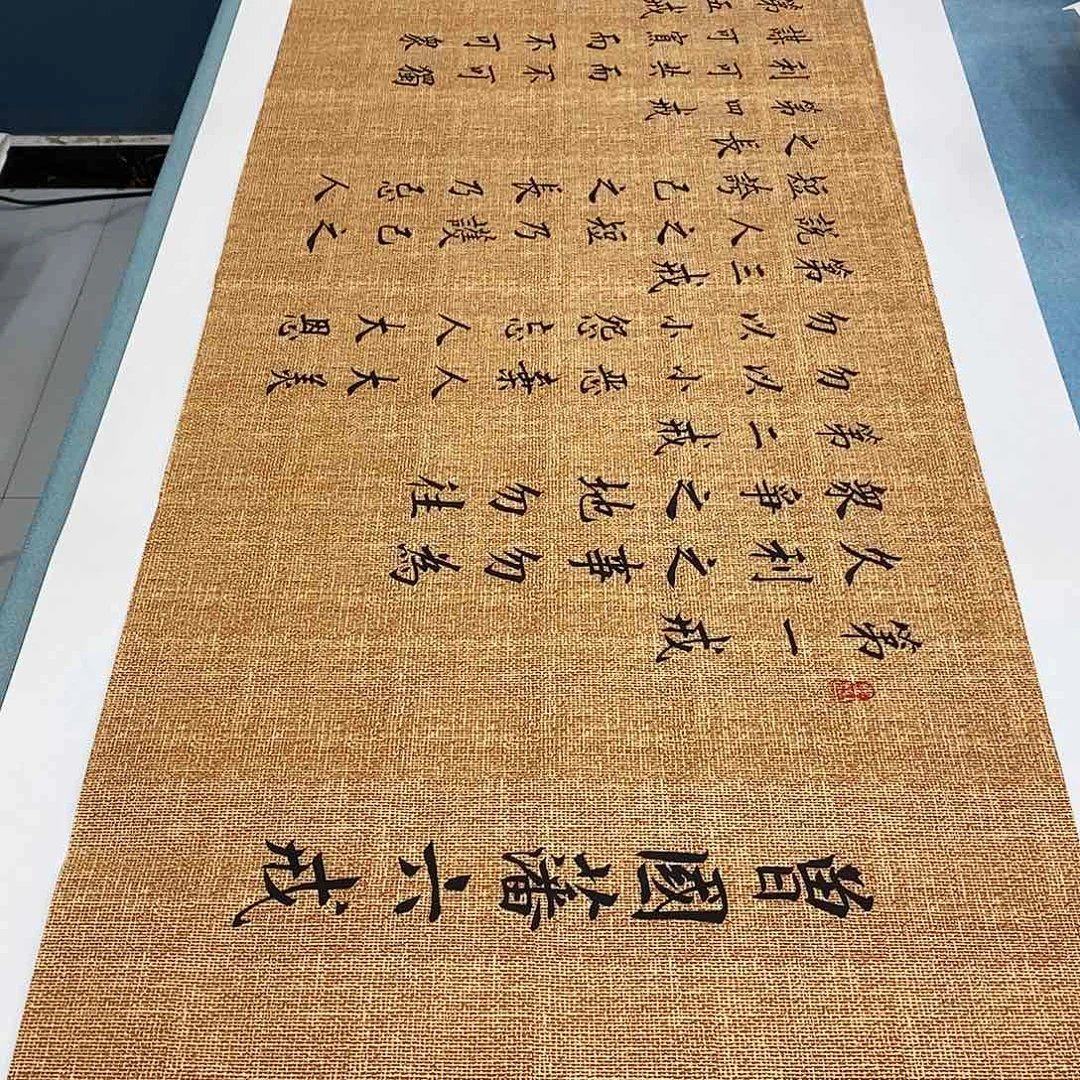 曾國藩六戒
第一戒
久利之事勿為
衆爭之地勿往
第二戒
勿以小恶棄人大美
勿以小怨忘人大恩
第三戒
說人之短乃護己之
短誇己之長乃忌人
之長
第四戒
利可共而不可獨
謀可寡而不可衆
第五戒